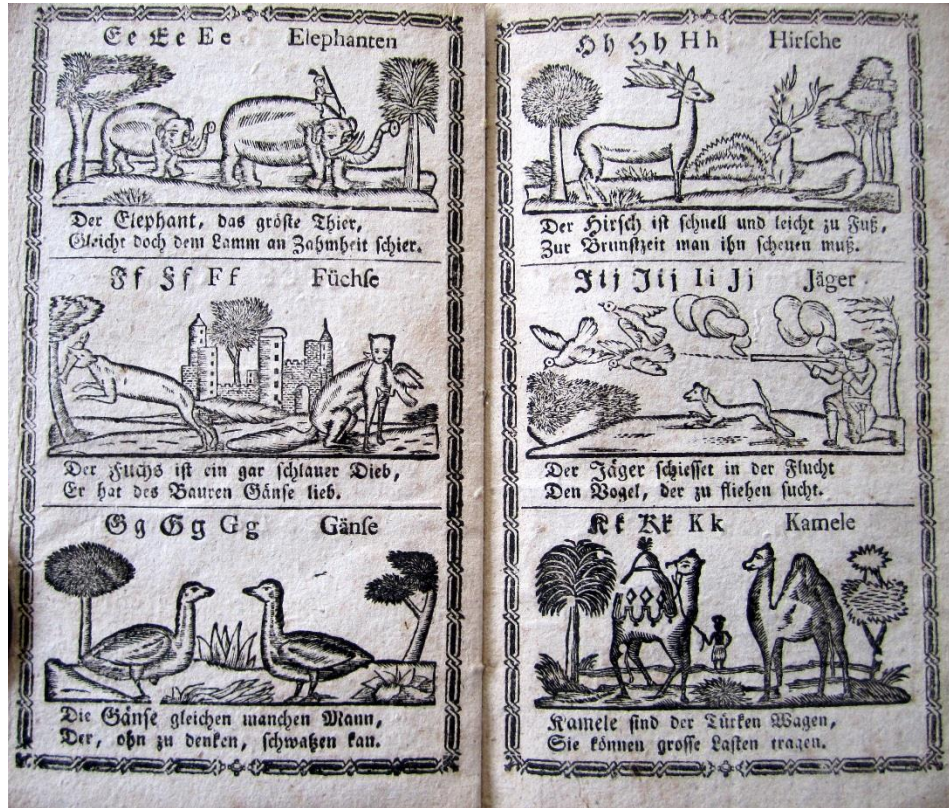 Ee Ee Ee Elephanten
Der Elephant, das gröste Thier,
Gleicht doch dem Lamm an Zahmheit schier.
Ff Ff Ff Füchse
Der Fuchs ist ein gar schlauer Dieb,
Er hat des Bauren Gänse lieb.
Gg Gg Gg Gänse
Die Gänse gleichen manchen Mann,
Der, ohn zu denken, schwatzen kan.
Hh Hh Hh Hirsche
Der Hirsch ist schnell und leicht zu Fuß,
Zur Brunstzeit man ihn scheuen muß.
Jij Jij Ii Jj Jäger
Der Jäger schiesset in der Flucht
Den Vogel, der zu fliehen sucht.
Kk Kk Kk Kamele
Kamele sind der Türken Wagen,
Sie können grosse Lasten tragen.